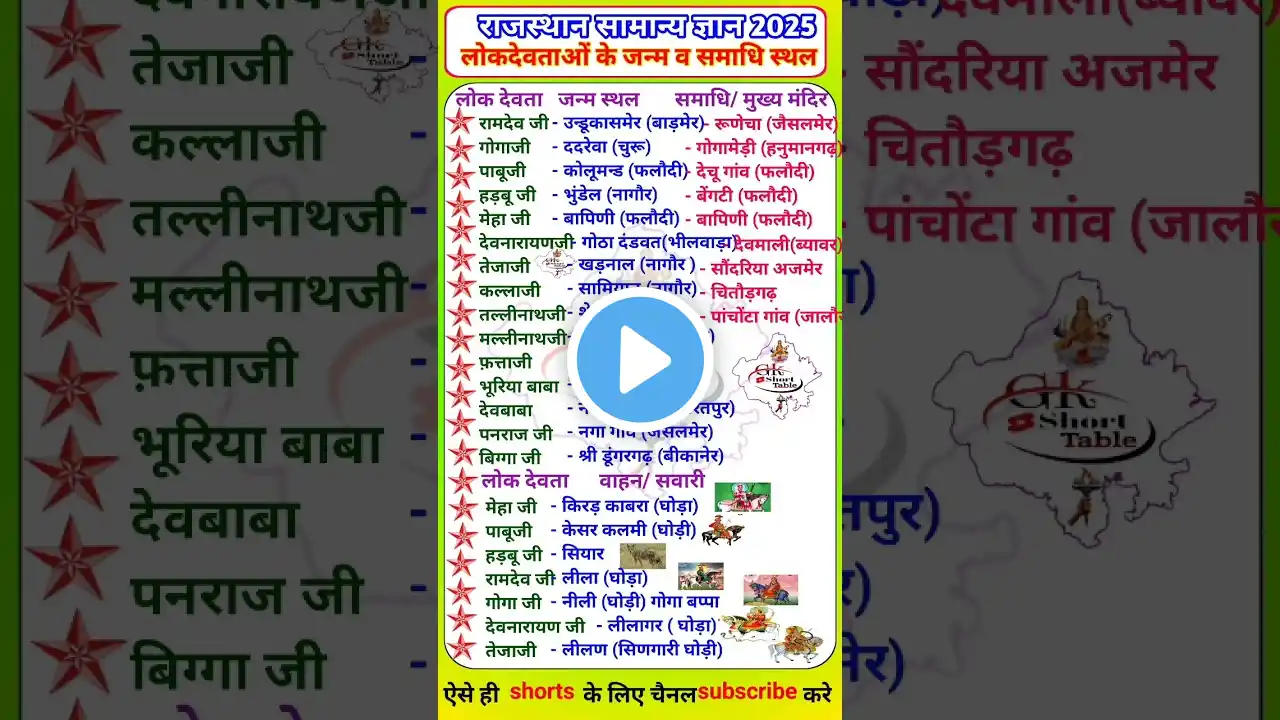 राजस्थान सामान्य ज्ञान 2025
लोकदेवताओं के जन्म व समाधि स्थल
लोक देवता जन्म स्थल समाधि/ मुख्य मंदिर
रामदेव जी - उन्डूकासमेर (बाड़मेर) - रूणेचा (जैसलमेर)
गोगाजी - ददरेवा (चुरू) - गोगामेड़ी (हनुमानगढ़)
पाबूजी - कोलूमन्ड (फलौदी) - देचू गांव (फलौदी)
हड़बू जी - भुंडेल (नागौर) - बेंगटी (फलौदी)
मेहा जी - बापिणी (फलौदी) - बापिणी (फलौदी)
देवनारायणजी - गोठा दंडवत(भीलवाड़ा) देवमाली(ब्यावर)
तेजाजी - खड़नाल (नागौर ) - सौंदरिया अजमेर
कल्लाजी - (नागौर) - चितौड़गढ़
तल्लीनाथजी - - पांचोंटा गांव (जालौर
मल्लीनाथजी
फ़त्ताजी
भूरिया बाबा -
देवबाबा -
पनराज जी - नगा गांव (जैसलमेर)
बिग्गा जी - श्री डूंगरगढ़ (बीकानेर)
लोक देवता वाहन/ सवारी
मेहा जी - किरड़ काबरा (घोड़ा)
पाबूजी - केसर कलमी (घोड़ी)
हड़बू जी - सियार
रामदेव जी - लीला (घोड़ा)
गोगा जी - नीली (घोड़ी) गोगा बप्पा
देवनारायण जी - लीलागर ( घोड़ा)
तेजाजी - लीलण (सिणगारी घोड़ी)
ऐसे ही shorts के लिए चैनल subscribe करे
Gk
Short
Table
तेजाजी
कल्लाजी
तल्लीनाथजी
मल्लीनाथजी
फ़त्ताजी
भूरिया बाबा
देवबाबा
पनराज जी
बिग्गा जी
देवमाली(ब्यावर)
सौंदरिया अजमेर
चितौड़गढ़
पांचोंटा गांव (जालौर
Gk
Short
Table